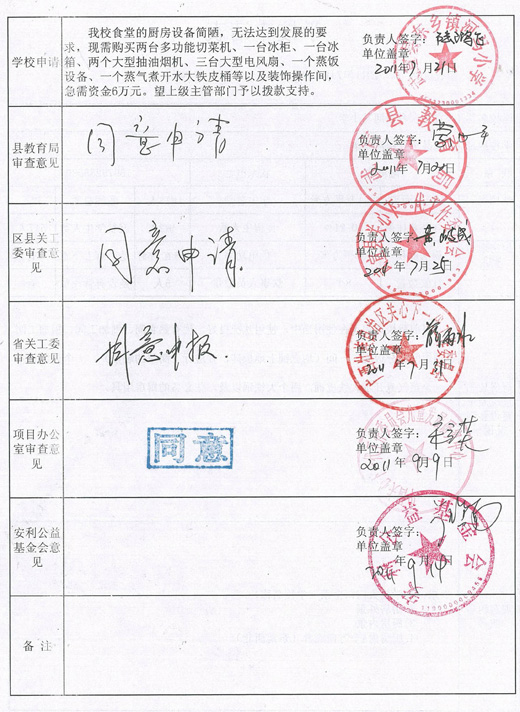 我校食堂的厨房设备简陋,无法达到发展的要
求,现需购买两台多功能切菜机、一台冰柜、一台冰
箱、两个大型抽油烟机、三台大型电风扇、一个蒸饭
设备、一个蒸气煮开水大铁皮桶等以及装饰操作间,
急需资金6万元。望上级主管部门予以拨款支持。
学校申请
负责人签字:
单位盖章
2011年7月21日
县教育局
审查意见
同意申请
负责人签字:
单位盖章
2011年7月22日
区县关工
委审查意
见
同意申请.
负责人签字:
单位盖章
2011年7月25日
省关工委
审查意见
同意申报.
负责人签字:
单位盖章
2011年7月
项目办公
室审查意
见
同意
负责人签字:
单位盖章
2011年9月9日
安利公益
基金会意
见
负责人签字:
单位盖章
2011年9月14日
备 注